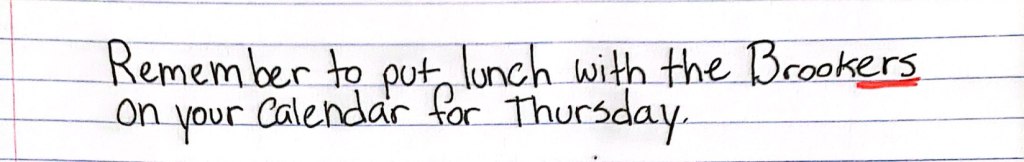 Remember to put lunch with the Brookers
on your Calendar for Thursday.